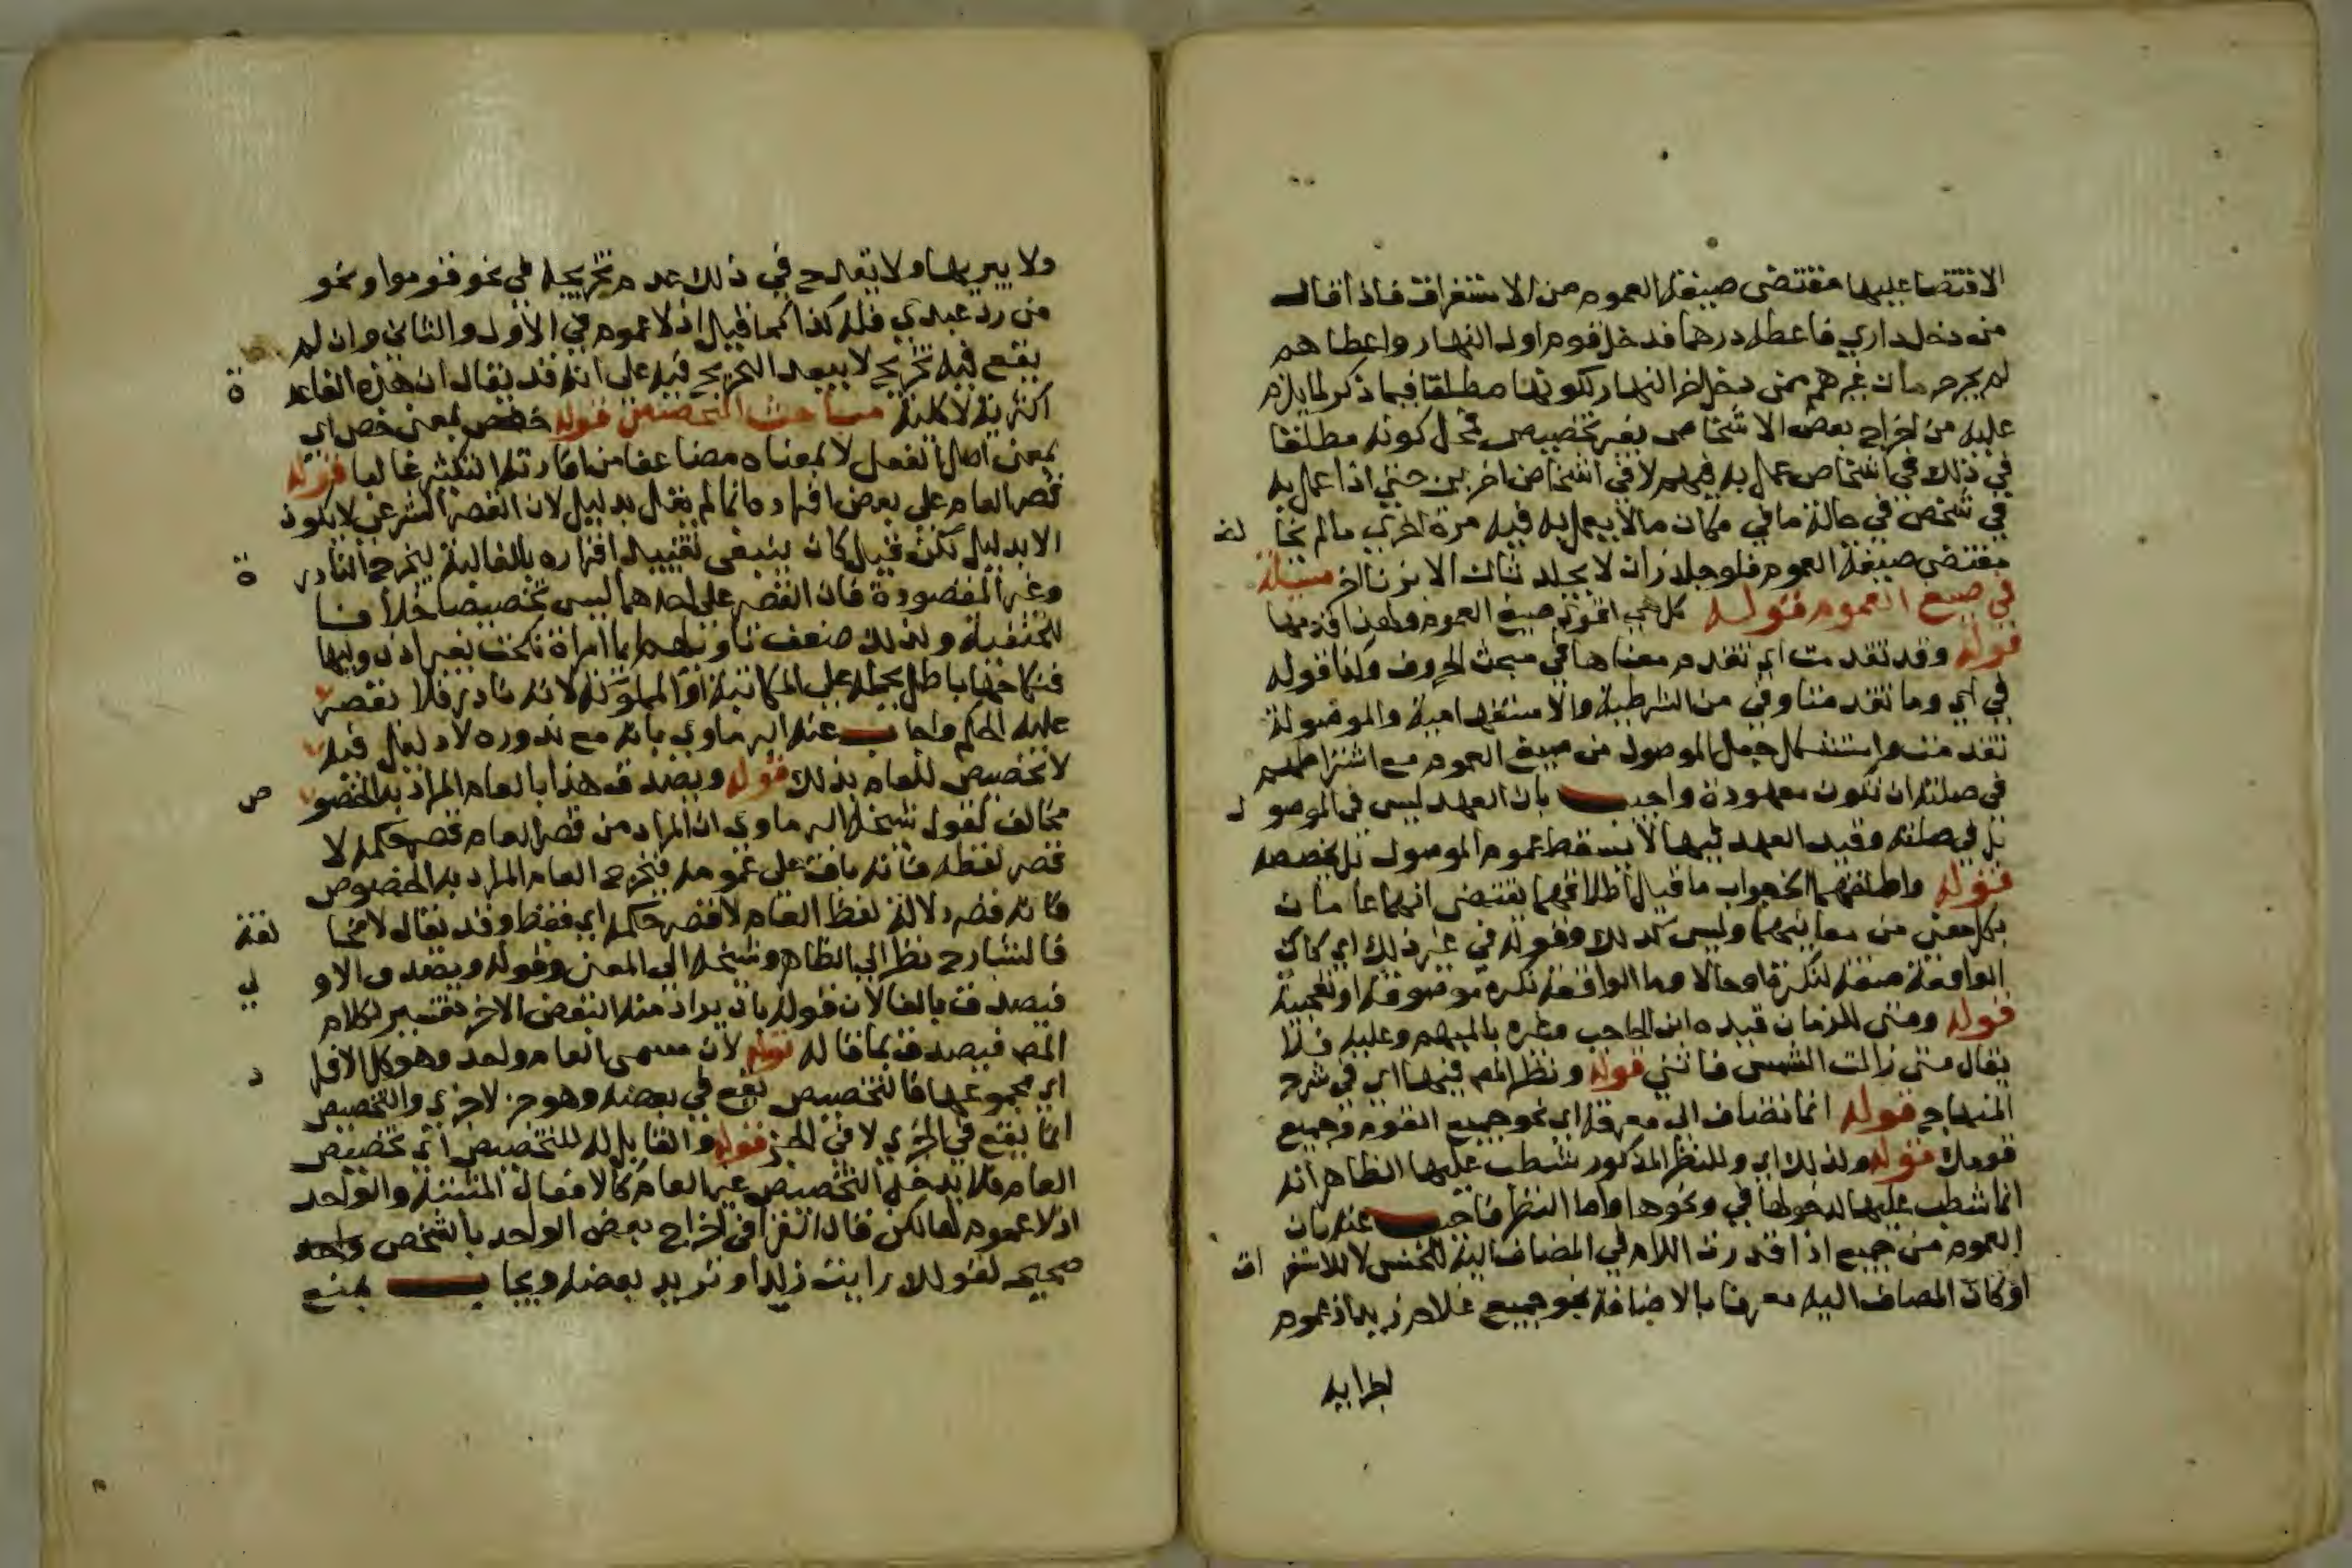 الاقتضا عليها مقتضى صيغة العموم من الاستغراق فاذا قال
من دخل داري فاعطه درهما فدخل قوم اول النهار واعطاهم
لم يجز حرمان غيرهم ممن دخل اخر النهار لكونها مطلقا فيما ذكر لما يلزم
عليه من اخراج بعض الاشخاص بغير تخصيص محل كونه مطلقا
في ذلك في اشخاص عمل به فيهم لا في اشخاص اخرين حتي اذا عمل به
في شخص في حالة ما في مكان ما لا يعمل به فيه مرة اخري ما لم يخالف
مقتضى صيغة العموم فلو جلد زان لا يجلد ثانيا الا بزنا اخر مسئلة
في صيغ العموم قوله كل هي اقوي صيغ العموم ولهذا قدمها
قوله وقد تقدمت اي تقدم معناها في مبحث الحروف وكذا قوله
في اي وما تقدمتا وفي من الشرطية والاستفهامية والموصولة
تقدمت واستشكل جعل الموصول من صيغ العموم مع اشتراطهم
في صلته ان تكون معهودة واجيب بان العهد ليس في الموصول
بل في صلته وقيد العهد فيها لا يسقط عموم الموصول بل يخصصه
قوله واطلقهما الخ جواب ما قيل اطلاقهما يقتضى انهما عامان
بكل معني من معانيهما وليس كذلك وقوله في غير ذلك اي كاي
الواقعة صفة لنكرة او حالا وما الواقعة نكرة موصوفة او تعجبية
قوله ومتى للزمان قيده ابن الحاجب وغيره بالمبهم وعليه فلا
يقال متى زالت الشمس فائتني قوله ونظر المص فيها اي في شرح
المنهاج قوله انما تضاف الى معرفة اي نحو جميع القوم وجميع
قومك قوله ولذلك اي وللنظر المذكور شطب عليها الظاهر انه
انما شطب عليها لدخولها في ونحوها واما النظر فاجيب عنه بان
العموم من جميع اذا قدرت اللام في المضاف اليه للجنس لا للاستغراق
او كان المضاف اليه معرفا بالاضافة نحو جميع غلام زيد اذ عموم
اجزايه
ولا يبريها ولا يقدح في ذلك عدم تخريجه في نحو قوموا ونحو
من رد عبدي فله كذا كما قيل اذ لا عموم في الاول والثاني وان لم
يقع فيه تخريج لا يبعد التخريج فيه على انه قد يقال ان هذه القاعدة
اكثرية لا كلية مباحث التخصيص قوله خصص بمعنى خص اي
بمعنى اصل الفعل لا بمعناه مضاعفا من افادته التكثير غالبا قوله
قصر العام على بعض افراده انما لم يقل بدليل لان القصر الشرعي لا يكون
الا بدليل لكن قيل كان ينبغي تقييد افراده بالغالبة ليخرج النادرة
وغير المقصودة فان القصر على احدهما ليس تخصيصا خلافا
للحنفية ولذلك ضعف تاويلهم ايما امراة نكحت بغير اذن وليها
فنكاحها باطل بحمله على المكاتبة او المملوكة لانه نادر فلا يقصر
عليه الحكم واجاب عنه البرماوي بانه مع ندوره لا دليل فيه
لا تخصيص للعام بذلك قوله ويصدق هذا بالعام المراد به الخصوص
مخالف لقول شيخه البرماوي ان المراد من قصر العام قصر حكمه لا
قصر لفظه فانه باق على عمومه فيخرج العام المراد به الخصوص
فانه قصر دلالة لفظ العام لا قصر حكمه اي فقط وقد يقال لا مخالفة
فالشارح نظر الي الظاهر وشيخه الي المعنى وقوله ويصدق الاولي
فيصدق بالفا لان قوله بان يراد منه البعض الاخر تفسير لكلام
المص فيصدق بما قاله قوله لان مسمى العام واحد وهو كل الافراد
اي مجموعها فالتخصيص يقع في بعضه وهو جزء لا جزي والتخصيص
انما يقع في الجزي لا في الجزء قوله والقابل له للتخصيص اي تخصيص
العام فلا يدخل التخصيص غير العام كالافعال المثبتة والواحد
اذ لا عموم لها لكن قال القرافي اخراج بعض الواحد بالشخص واحد
صحيح لقولك رايت زيدا وتريد بعضه ويجاب بمنع